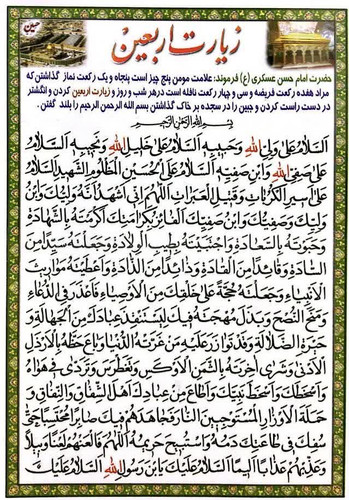 زیارت اربعین
حضرت امام حسن عسکری (ع) فرموند: علامت مومن پنج چیز است پنجاه و یک رکعت نماز گذاشتن که
مراد هفده رکعت فریضه و سی و چهار رکعت نافله است در هر شب و روز و زیارت اربعین کردن و انگشتر
در دست راست کردن و جبین را در سجده بر خاک گذاشتن بسم الله الرحمن الرحیم را بلند گفتن.
بسم الله الرحمن الرحیم
اَلسَّلامُ عَلی وَلِیِّ اللهِ وَحَبیبِهِ اَلسَّلامُ عَلی خَلیلِ اللهِ وَنَجیبِهِ اَلسَّلامُ
عَلی صَفِیِّ اللهِ وَابْنِ صَفِیِّهِ اَلسَّلامُ عَلَی الْحُسَیْنِ الْمَظْلُومِ الشَّهیدِ اَلسَّلامُ
عَلی اَسیرِ الْکُرُباتِ وَقَتیلِ الْعَبَراتِ اَللّهُمَّ اِنّی اَشْهَدُ اَنَّهُ وَلِیُّکَ وَابْنُ
وَلِیِّکَ وَصَفِیُّکَ وَابْنُ صَفِیِّکَ الْفائِزُ بِکَرامَتِکَ اَکْرَمْتَهُ بِالشَّهادَةِ
وَحَبَوْتَهُ بِالسَّعادَةِ وَاجْتَبَیْتَهُ بِطیبِ الْوِلادَةِ وَجَعَلْتَهُ سَیِّداً مِنَ
السّادَةِ وَقائِداً مِنَ الْقادَةِ وَذائِداً مِنَ الذّادَةِ وَاَعْطَیْتَهُ مَواریثَ
الْاَنْبِیاءِ وَجَعَلْتَهُ حُجَّةً عَلی خَلْقِکَ مِنَ الْاَوْصِیاءِ فَاَعْذَرَ فِی الدُّعاءِ
وَمَنَحَ النُّصْحَ وَبَذَلَ مُهْجَتَهُ فیکَ لِیَسْتَنْقِذَ عِبادَکَ مِنَ الْجَهالَةِ وَ
حَیْرَةِ الضَّلالَةِ وَقَدْ تَوازَرَ عَلَیْهِ مَنْ غَرَّتْهُ الدُّنْیا وَباعَ حَظَّهُ بِالْاَرْذَلِ
الْاَدْنی وَشَری آخِرَتَهُ بِالثَّمَنِ الْاَوْکَسِ وَتَغَطْرَسَ وَتَرَدّی فی هَواهُ
وَاَسْخَطَکَ وَاَسْخَطَ نَبِیَّکَ وَاَطاعَ مِنْ عِبادِکَ اَهْلَ الشِّقاقِ وَالنِّفاقِ وَ
حَمَلَةَ الْاَوْزارِ الْمُسْتَوْجِبینَ النّارَ فَجاهَدَهُمْ فیکَ صابِراً مُحْتَسِباً حَتّی
سُفِکَ فی طاعَتِکَ دَمُهُ وَاسْتُبیحَ حَریمُهُ اَللّهُمَّ فَالْعَنْهُمْ لَعْناً وَبیلاً
وَعَذِّبْهُمْ عَذاباً اَلیماً اَلسَّلامُ عَلَیْکَ یَابْنَ رَسُولِ اللهِ اَلسَّلامُ عَلَیْکَ